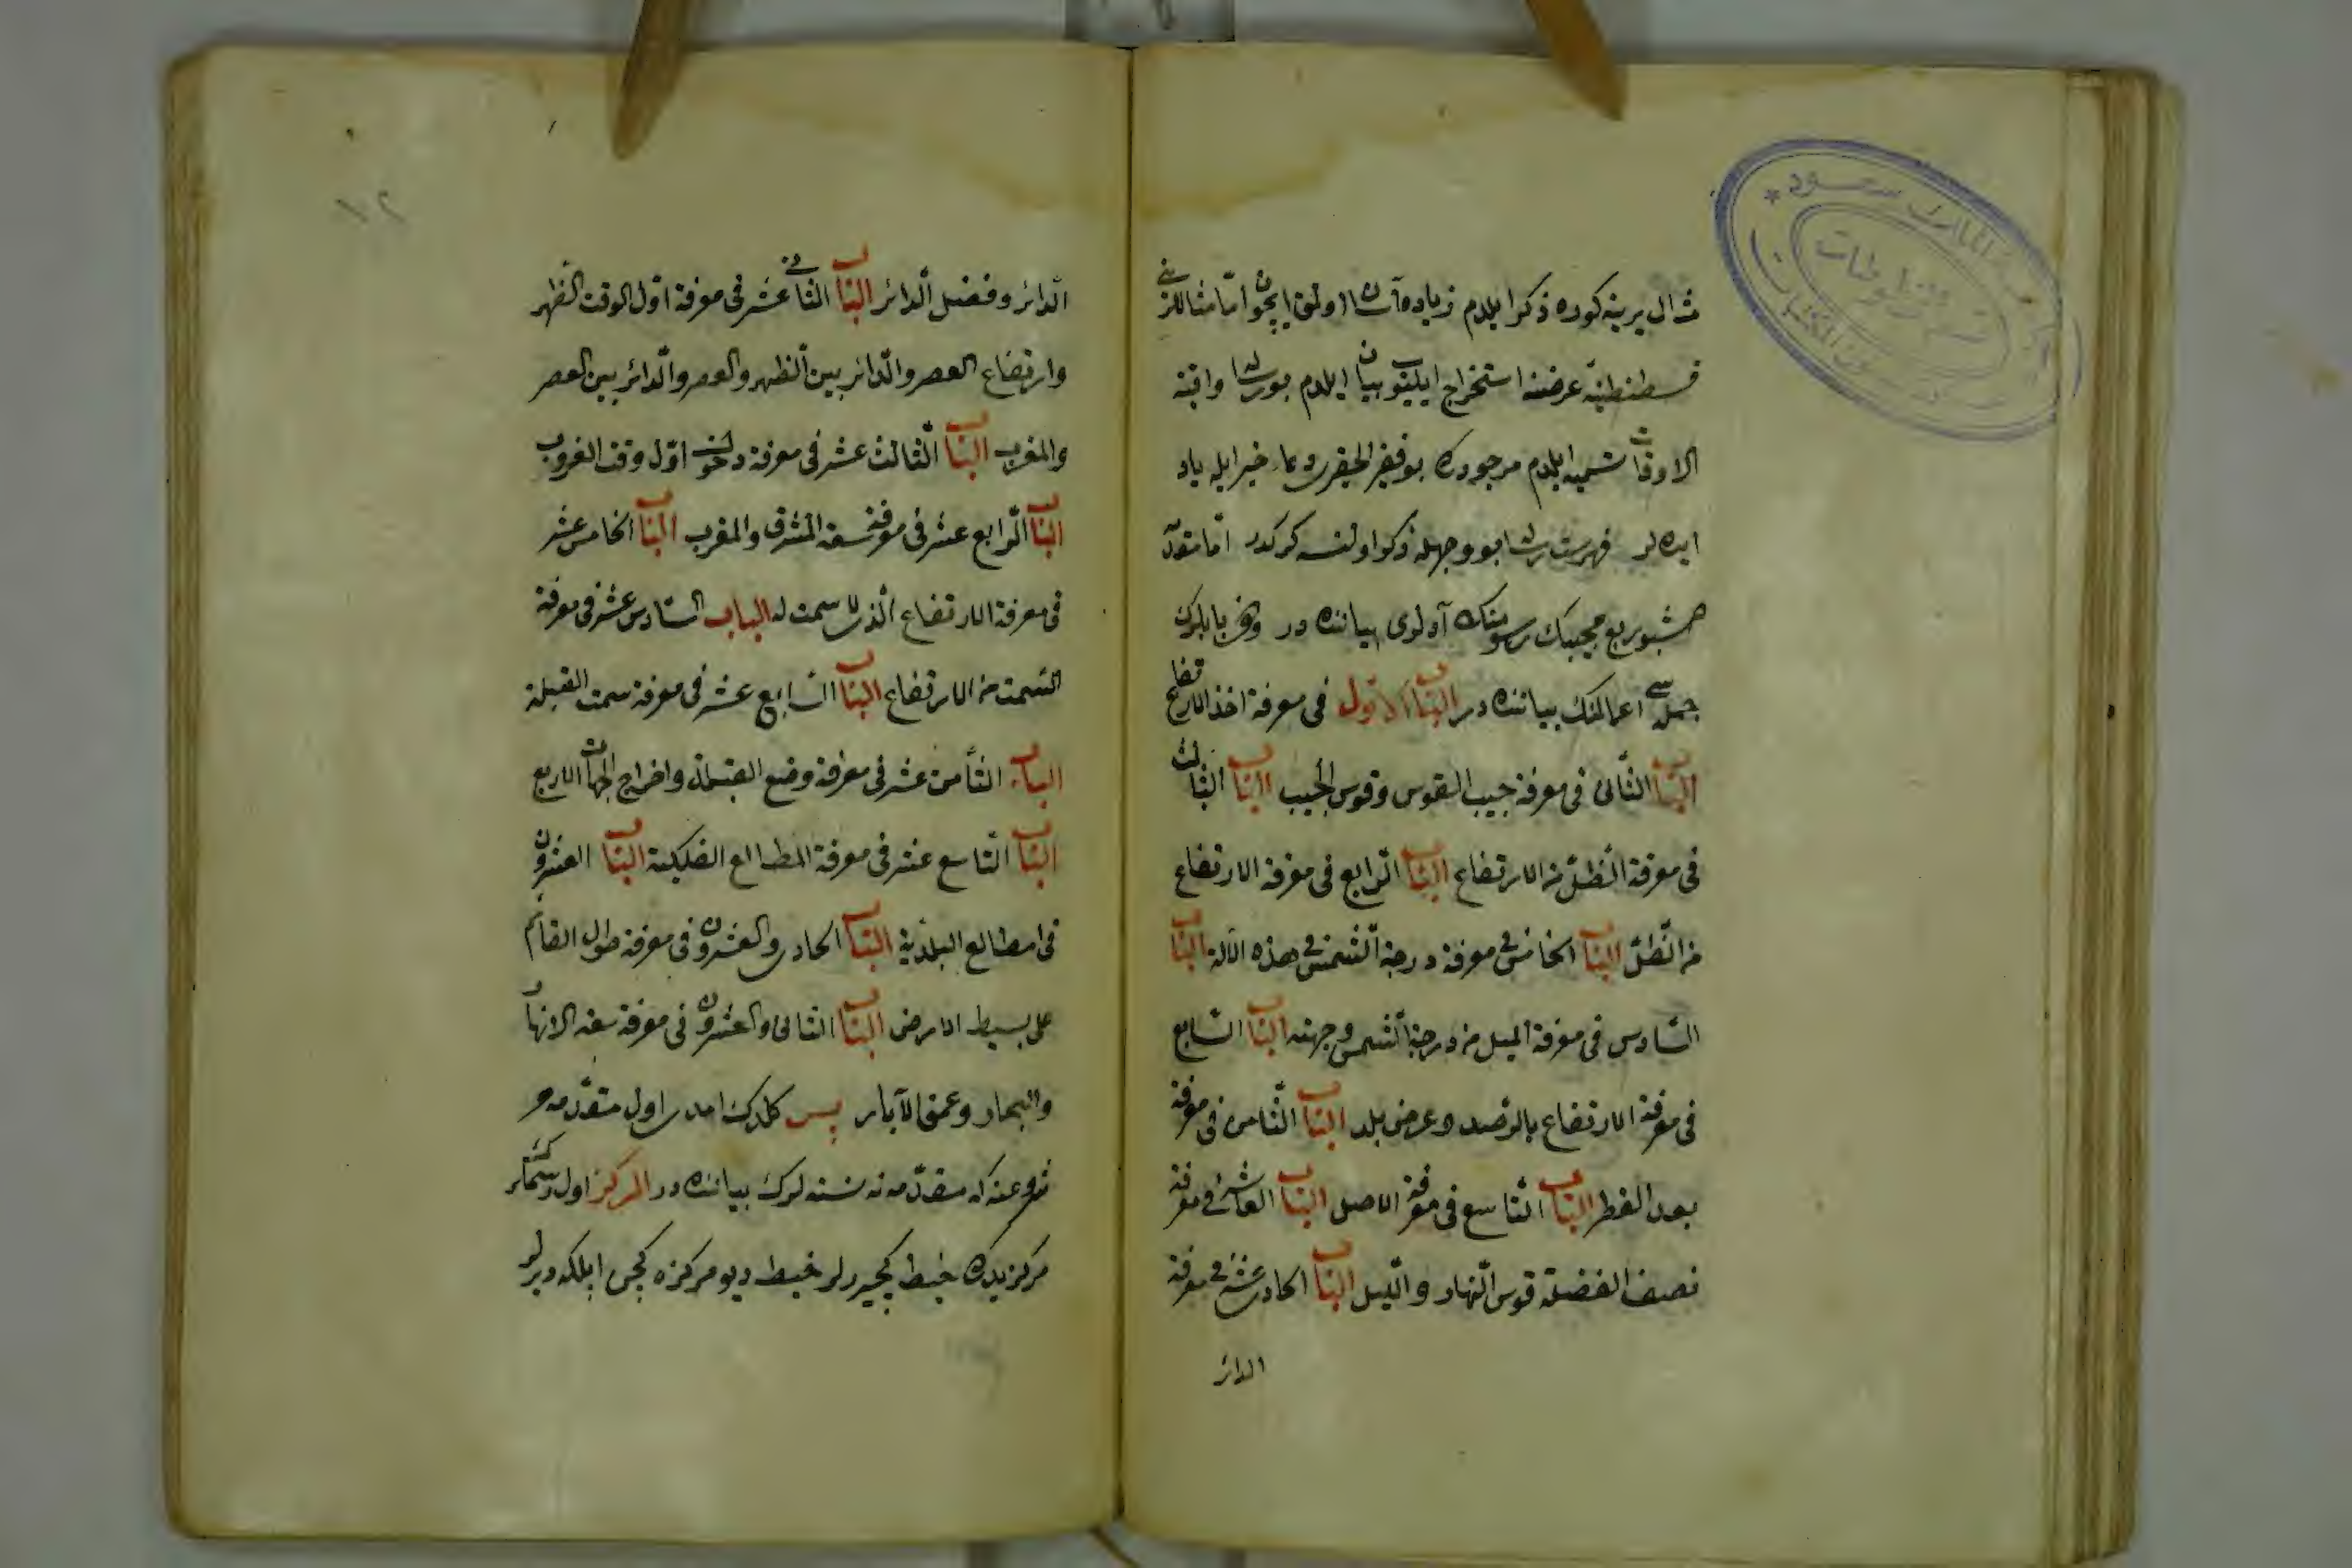 مثال يرينه كوره ذكر ايلدم زياده آسان اولمق ايچون اما مثاللرينى
قسطنطنيه عرضنه استخراج ايلينوب بيان ايلدم بو رساله واقية
الاوقات تسميه ايلدم مرجودركه بو فقير الحقيرى دعاء خير ايله ياد
ايده لر فهرست رساله بو وجهله ذكر اولنسه كركدر اما مقدمه
هشبو ربع مجيبك رسومنك آدلرى بياننده در وهر بابلرك
جمله سى اعمالنك بياننده در الباب الاول فى معرفة اخذ الارتفاع
الباب الثانى فى معرفة جيب القوس وقوس الجيب الباب الثالث
فى معرفة الظل من الارتفاع الباب الرابع فى معرفة الارتفاع
من الظل الباب الخامس فى معرفة درجة الشمس فى هذه الآلة الباب
السادس فى معرفة الميل من درجة الشمس وجهته الباب السابع
فى معرفة الارتفاع بالرصد وعرض بلد الباب الثامن فى معرفة
بعد القطر الباب التاسع فى معرفة الاصل الباب العاشر فى معرفة
نصف الفضلة قوس النهار والليل الباب الحادى عشر فى معرفة
الدائر
١٢
الدائر وفضل الدائر الباب الثانى عشر فى معرفة اول الوقت الظهر
وارتفاع العصر والدائر بين الظهر والعصر والدائر بين العصر
والمغرب الباب الثالث عشر فى معرفة دخول اول وقت الغروب
الباب الرابع عشر فى معرفة سعة المشرق والمغرب الباب الخامس عشر
فى معرفة الارتفاع الذى لا سمت له الباب السادس عشر فى معرفة
السمت من الارتفاع الباب السابع عشر فى معرفة سمت القبلة
الباب الثامن عشر فى معرفة وضع القبلة واخراج الجهات الاربع
الباب التاسع عشر فى معرفة المطالع الفلكية الباب العشرون
فى مطالع البلدية الباب الحادى والعشرون فى معرفة طول القائم
على بسيط الارض الباب الثانى والعشرون فى معرفة سعة الانهار
والبحار وعمق الآبار پس كلدك امدى اول مقدمه
شروعنه كه مقدمه نه نسنه لرك بياننده در المركز اول
مركز يدركه خيط كچيررلر خيط ديو مركزه كچن ايلكه ديرلر
جامعة الملك سعود
قسم المخطوطات